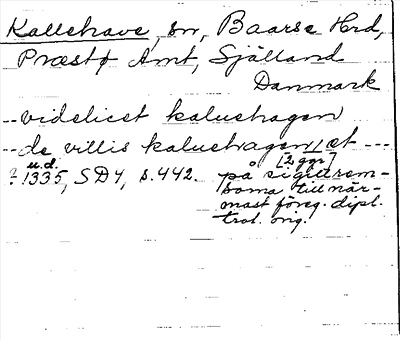 Kallehave, sn, Baarse Hrd,
Præstø Amt, Sjålland
Danmark
-- videlicet kaluehagen
-- de villis kaluehagen / et ---
u.d. [2 ggr]
? 1335, SD 4, s. 442. på sigillrem-
sorna till när-
mast föreg. dipl.
trol. orig.